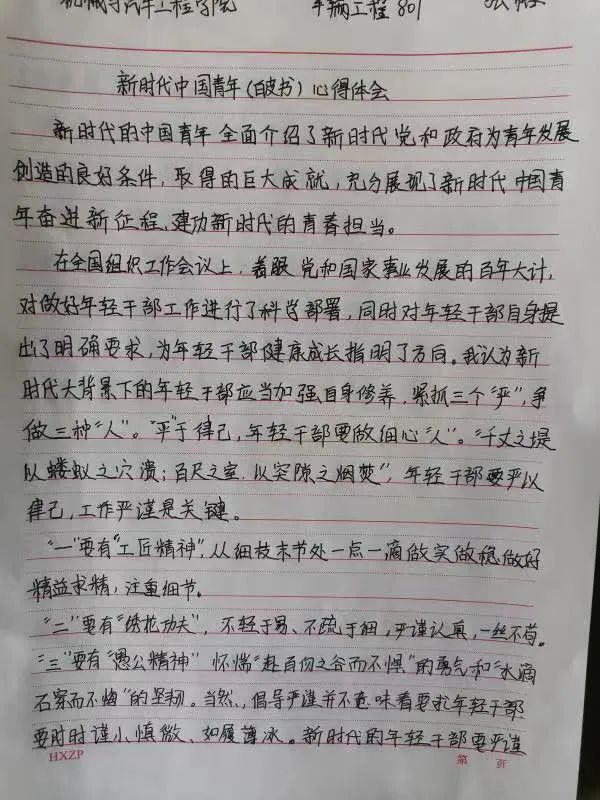 机械与汽车工程学院 车辆工程801 张
新时代中国青年（白皮书）心得体会
新时代的中国青年 全面介绍了新时代党和政府为青年发展
创造的良好条件，取得的巨大成就，充分展现了新时代中国青
年奋进新征程，建功新时代的青春担当。
在全国组织工作会议上，着眼党和国家事业发展的百年大计，
对做好年轻干部工作进行了科学部署，同时对年轻干部自身提
出了明确要求，为年轻干部健康成长指明了方向。我认为新
时代大背景下的年轻干部应当加强自身修养，紧抓三个“严”，争
做三种“人”。“严”于律己，年轻干部要做细心“人”。“千丈之堤
以蝼蚁之穴溃；百尺之室，以突隙之烟焚”，年轻干部要严以
律己，工作严谨是关键。
“一”要有“工匠精神”，从细枝末节处一点一滴做实做稳做好
精益求精，注重细节。
“二”要有“绣花功夫”，不轻于易、不疏于细，严谨认真，一丝不苟。
“三”要有“愚公精神” 怀揣“赴百仞之谷而不惧”的勇气和“水滴
石穿而不悔”的坚韧。当然，倡导严谨并不意味着要求年轻干部
要时时谨小慎微、如履薄冰。新时代的年轻干部要严谨
HXZP 第 页